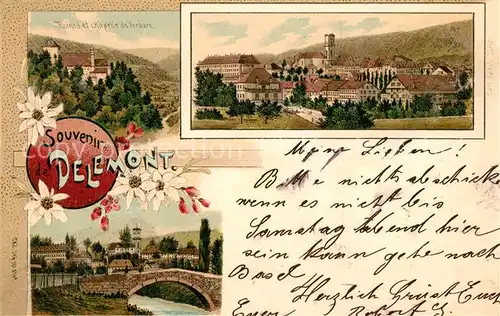 Ruines et chapelle du Vorbourg.
Souvenir
de
DELÉMONT.
Meine Lieben!
Bitte nichts abschicken
wenn nichts bis
Samstag abend hier
sein kann gehe nach
Basel
Herzlich Grüst Euch
Euer Robert